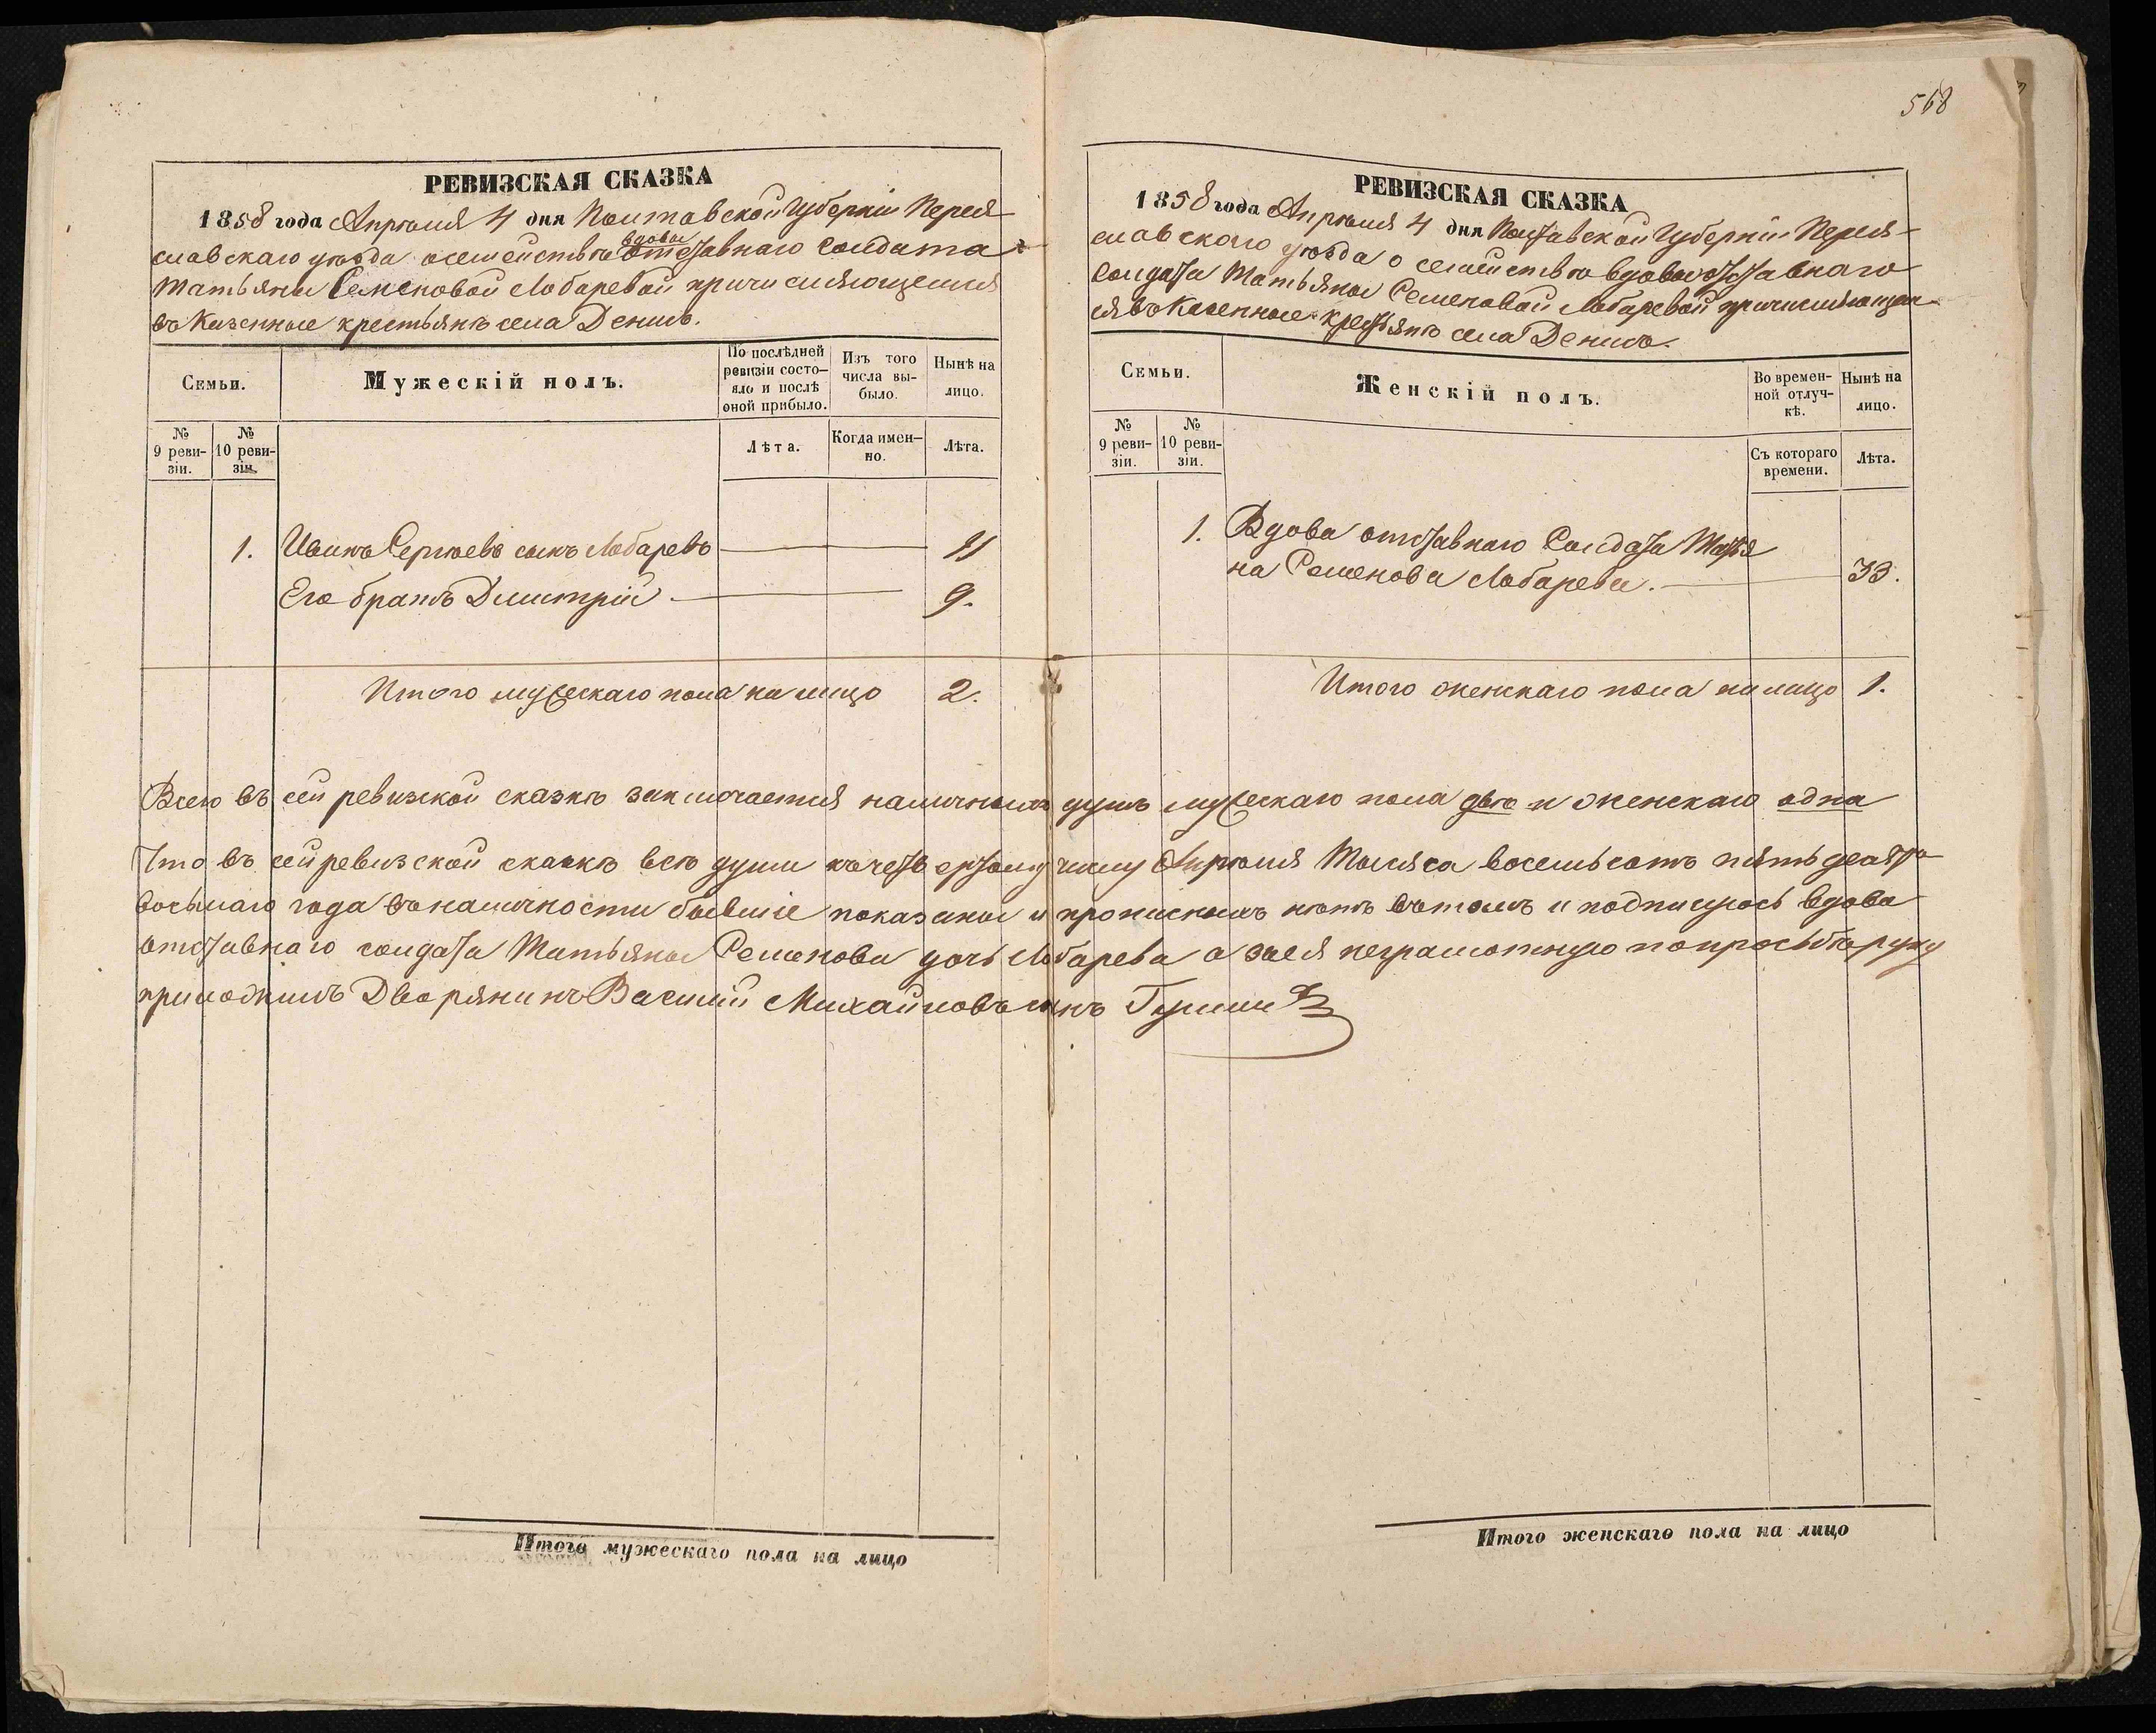 568
РЕВИЗСКАЯ СКАЗКА
1858 года Апрѣля 4 дня Полтавской Губерніи Перея-
славскаго уѣзда о семействѣ вдовы отставнаго Солдата
Татьяны Семеновой Лобаревой причисляющемся
въ Казенные крестьянѣ села Денисъ.
Семьи.
Мужескій полъ.
По послѣдней
ревизіи состо-
яло и послѣ
оной прибыло.
Изъ того
числа вы-
было.
Нынѣ на
лицо.
№
9 реви-
зіи.
№
10 реви-
зіи.
Лѣта.
Когда имен-
но.
Лѣта.
1. Иванъ Сергѣевъ сынъ Лобаревъ 11
Его братъ Дмитрій 9.
Итого мужескаго пола на лицо 2.
РЕВИЗСКАЯ СКАЗКА
1858 года Апрѣля 4 дня Полтавской Губерніи Перея-
славского уѣзда о семействѣ вдовы отставнаго
Солдата Татьяны Семеновой Лобаревой причисляющем
ся въ Казенные крестьянѣ села Денисъ.
Семьи.
Женскій полъ.
Во времен-
ной отлуч-
кѣ.
Нынѣ на
лицо.
№
9 реви-
зіи.
№
10 реви-
зіи.
Съ котораго
времени.
Лѣта.
1. Вдова отставнаго Солдата Татья
на Семенова Лобарева. 33.
Итого женскаго пола на лицо 1.
Всего въ сей ревизской сказкѣ заключается наличныхъ душъ мужескаго пола двѣ и женскаго одна
Что въ сей ревизской сказкѣ всѣ души къ четвертому числу Апрѣля Мѣсяца восемьсотъ пятьдесятъ
восьмаго года въ наличности бывшіе показаны и прописныхъ нѣтъ въ томъ и подписуюсь вдова
отставнаго солдата Татьяна Семенова дочь Лобарева а за ея неграмотную по просьбѣ руку
приложилъ Дворянинъ Василій Михайловъ сынъ
Итого мужескаго пола на лицо
Итого женскаго пола на лицо